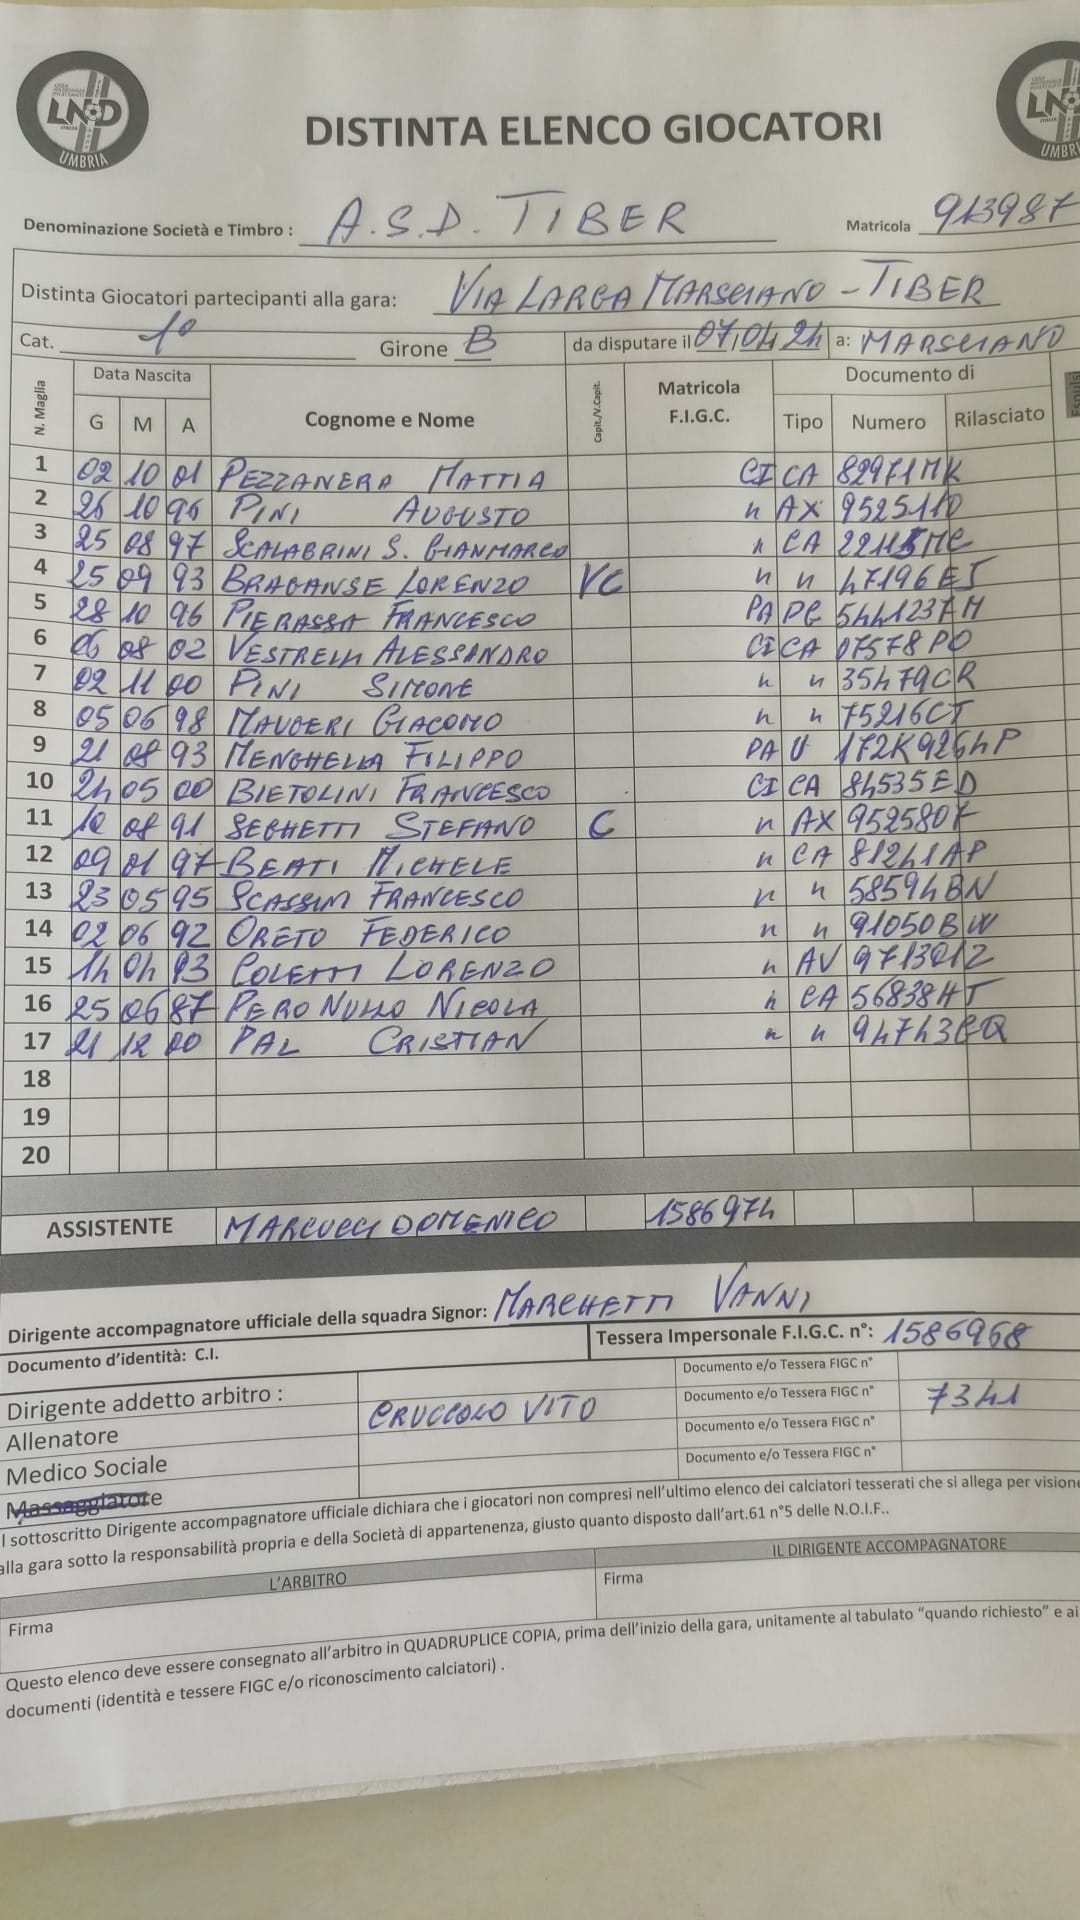 LND
ITALIA
UMBRIA
DISTINTA ELENCO GIOCATORI
Denominazione Società e Timbro : A.S.D. TIBER Matricola 913987
Distinta Giocatori partecipanti alla gara: VIA LARGA MARSCIANO - TIBER
Cat. 1° Girone B da disputare il 07/04/24 a: MARSCIANO
N. Maglia Data Nascita Cognome e Nome Capit./V.Capit. Matricola F.I.G.C. Documento di Espulsi
G M A Tipo Numero Rilasciato
1 02 10 01 PEZZANERA MATTIA CI CA 82971MK
2 26 10 96 PINI AUGUSTO " AX 9525110
3 25 08 97 SCALABRINI S. GIANMARCO " CA
4 25 09 93 BRAGANSE LORENZO VC " " 47196EJ
5 28 10 96 PIERASSA FRANCESCO PA
6 06 08 02 VESTRELLI ALESSANDRO CI CA 07578PO
7 02 11 00 PINI SIMONE " " 35479CR
8 05 06 98 MAUGERI GIACOMO " " 75216CT
9 21 08 93 MENGHELLA FILIPPO PA U 172K9264P
10 24 05 00 BIETOLINI FRANCESCO CI CA 84535ED
11 10 08 91 SEGHETTI STEFANO C " AX 9525807
12 09 01 97 BEATI MICHELE " CA 81241AP
13 23 05 95 SCASSINI FRANCESCO " " 58594BN
14 02 06 92 ORETO FEDERICO " " 91050BW
15 14 04 93 COLETTI LORENZO " AV 9713012
16 25 06 87 PERO NULLO NICOLA " CA 56838HT
17 21 12 00 PAL CRISTIAN " "
18
19
20
ASSISTENTE MARCUCCI DOMENICO 1586974
Dirigente accompagnatore ufficiale della squadra Signor: MARCHETTI VANNI
Documento d'identità: C.I. Tessera Impersonale F.I.G.C. n°: 1586968
Dirigente addetto arbitro : Documento e/o Tessera FIGC n°
Allenatore CRUCCOLO VITO Documento e/o Tessera FIGC n° 7341
Medico Sociale Documento e/o Tessera FIGC n°
Massaggiatore Documento e/o Tessera FIGC n°
l sottoscritto Dirigente accompagnatore ufficiale dichiara che i giocatori non compresi nell'ultimo elenco dei calciatori tesserati che si allega per visione
alla gara sotto la responsabilità propria e della Società di appartenenza, giusto quanto disposto dall'art.61 n°5 delle N.O.I.F..
L'ARBITRO IL DIRIGENTE ACCOMPAGNATORE
Firma Firma
Questo elenco deve essere consegnato all'arbitro in QUADRUPLICE COPIA, prima dell'inizio della gara, unitamente al tabulato "quando richiesto" e ai
documenti (identità e tessere FIGC e/o riconoscimento calciatori) .